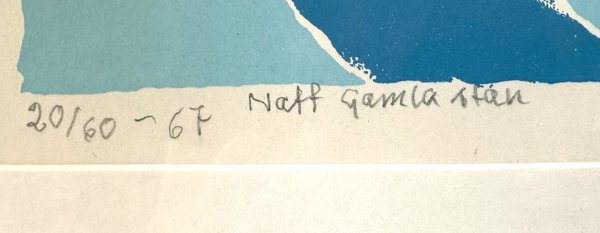 20/60 - 67 Natt Gamla stan